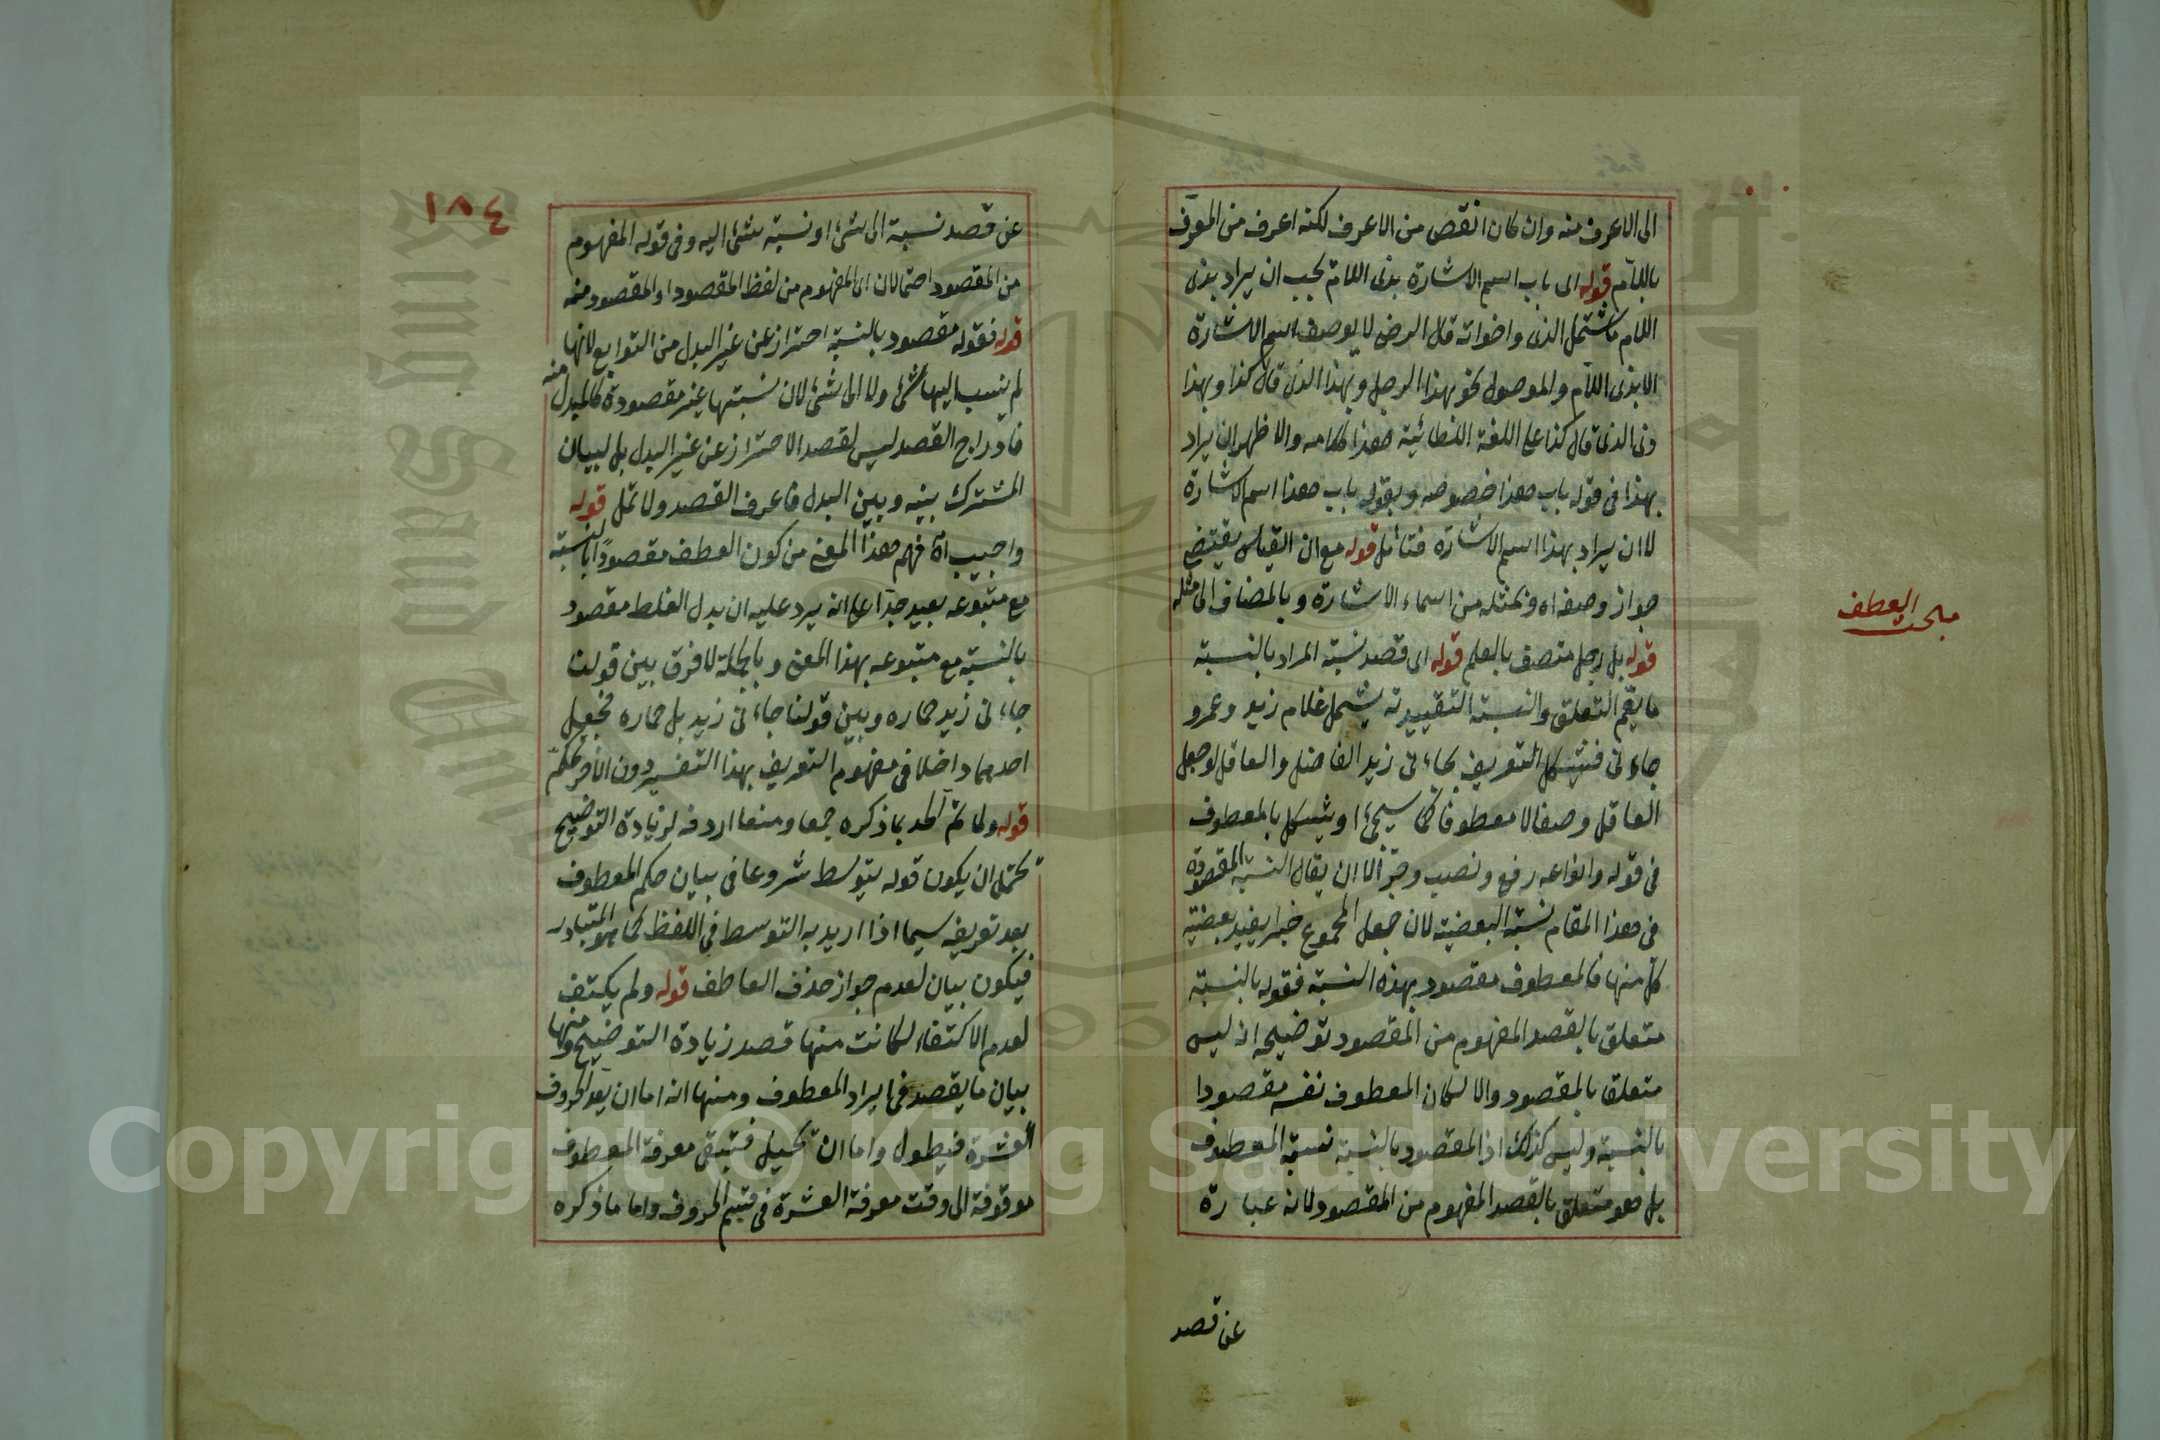 الى الاعرف منه وان كان انقص من الاعرف لكنه اعرف من المعرف
باللام قوله اى باب اسم الاشارة بذى اللام يجب ان يراد بذى
اللام ما يشتمل الذى واخواته قال الرضى لا يوصف اسم الاشارة
الا بذى اللام والموصول نحو بهذا الرجل وبهذا الذى قال كذا وبهذا
ذى الذى قال كذا على اللغة الطائية هذا كلامه والاظهر ان يراد
بهذا فى قوله باب هذا خصوصه وبقوله باب هذا اسم الاشارة
لا ان يراد بهذا اسم الاشارة فتأمل قوله مع ان القياس يقتضى
جواز وصف اه وبمثله من اسماء الاشارة وبالمضاف الى مثله
قوله بل رجل متصف بالعلم قوله اى قصد نسبته المراد بالنسبة
ما يعم التعلق والنسبة التقييدية يشمل غلام زيد وعمرو
جاءنى فيشكل التعريف بجاءنى زيد الفاضل والعاقل لو جعل
العاقل وصفا لا معطوفا كما سيجئ ويشكل بالمعطوف
فى قوله وانواعه رفع ونصب وجر الا ان يقال النسبة المقصودة
فى هذا المقام نسبة البعضية لان جعل المجموع خبرا يفيد بعضية
كل منها فالمعطوف مقصود بهذه النسبة فقوله بالنسبة
متعلق بالقصد المفهوم من المقصود توضيحه انه ليس
متعلقا بالمقصود والا لكان المعطوف نفسه مقصودا
بالنسبة وليس كذلك اذ المقصود بالنسبة نسبة المعطوف
بل هو متعلق بالقصد المفهوم من المقصود لانه عبارة
عن قصد
مبحث العطف
١٨٤
عن قصد نسبة الى شئ او نسبة شئ اليه وفى قوله المفهوم
من المقصود احتمالان اى المفهوم من لفظ المقصود او المقصود منه
قوله فقوله مقصود بالنسبة احتراز عن غير البدل من التوابع لانها
لم ينسب اليها شئ ولا الى شئ لان نسبتها غير مقصودة كالمبدل منه
فادراج القصد ليس لقصد الاحتراز عن غير البدل بل لبيان
المشترك بينه وبين البدل فاعرف القصد ولا تمل قوله
واجيب اه فهم هذا المعنى من كون العطف مقصودا بالنسبة
مع متبوعه بعيد جدا على انه يرد عليه ان بدل الغلط مقصود
بالنسبة مع متبوعه بهذا المعنى وبالجملة لا فرق بين قولنا
جاءنى زيد حماره وبين قولنا جاءنى زيد بل حماره فجعل
احدهما داخلا فى مفهوم التعريف بهذا التفسير دون الآخر تحكم
قوله ولما تم الحد بما ذكره جمعا ومنعا اردفه لزيادة التوضيح
يحتمل ان يكون قوله يتوسط شروعا فى بيان حكم المعطوف
بعد تعريفه سيما اذا اريد به التوسط فى اللفظ كما هو المتبادر
فيكون بيان لعدم جواز حذف العاطف قوله ولم يكتف
لعدم الاكتفاء نكات منها قصد زيادة التوضيح ومنها
بيان ما يقصد فى ايراد المعطوف ومنها انه اما ان يعد الحروف
العشرة فيطول واما ان يحيل فتبقى معرفة المعطوف
موقوفة الى وقت معرفة العشرة فى قسم الحروف واما ما ذكره
Copyright © King Saud University
1957